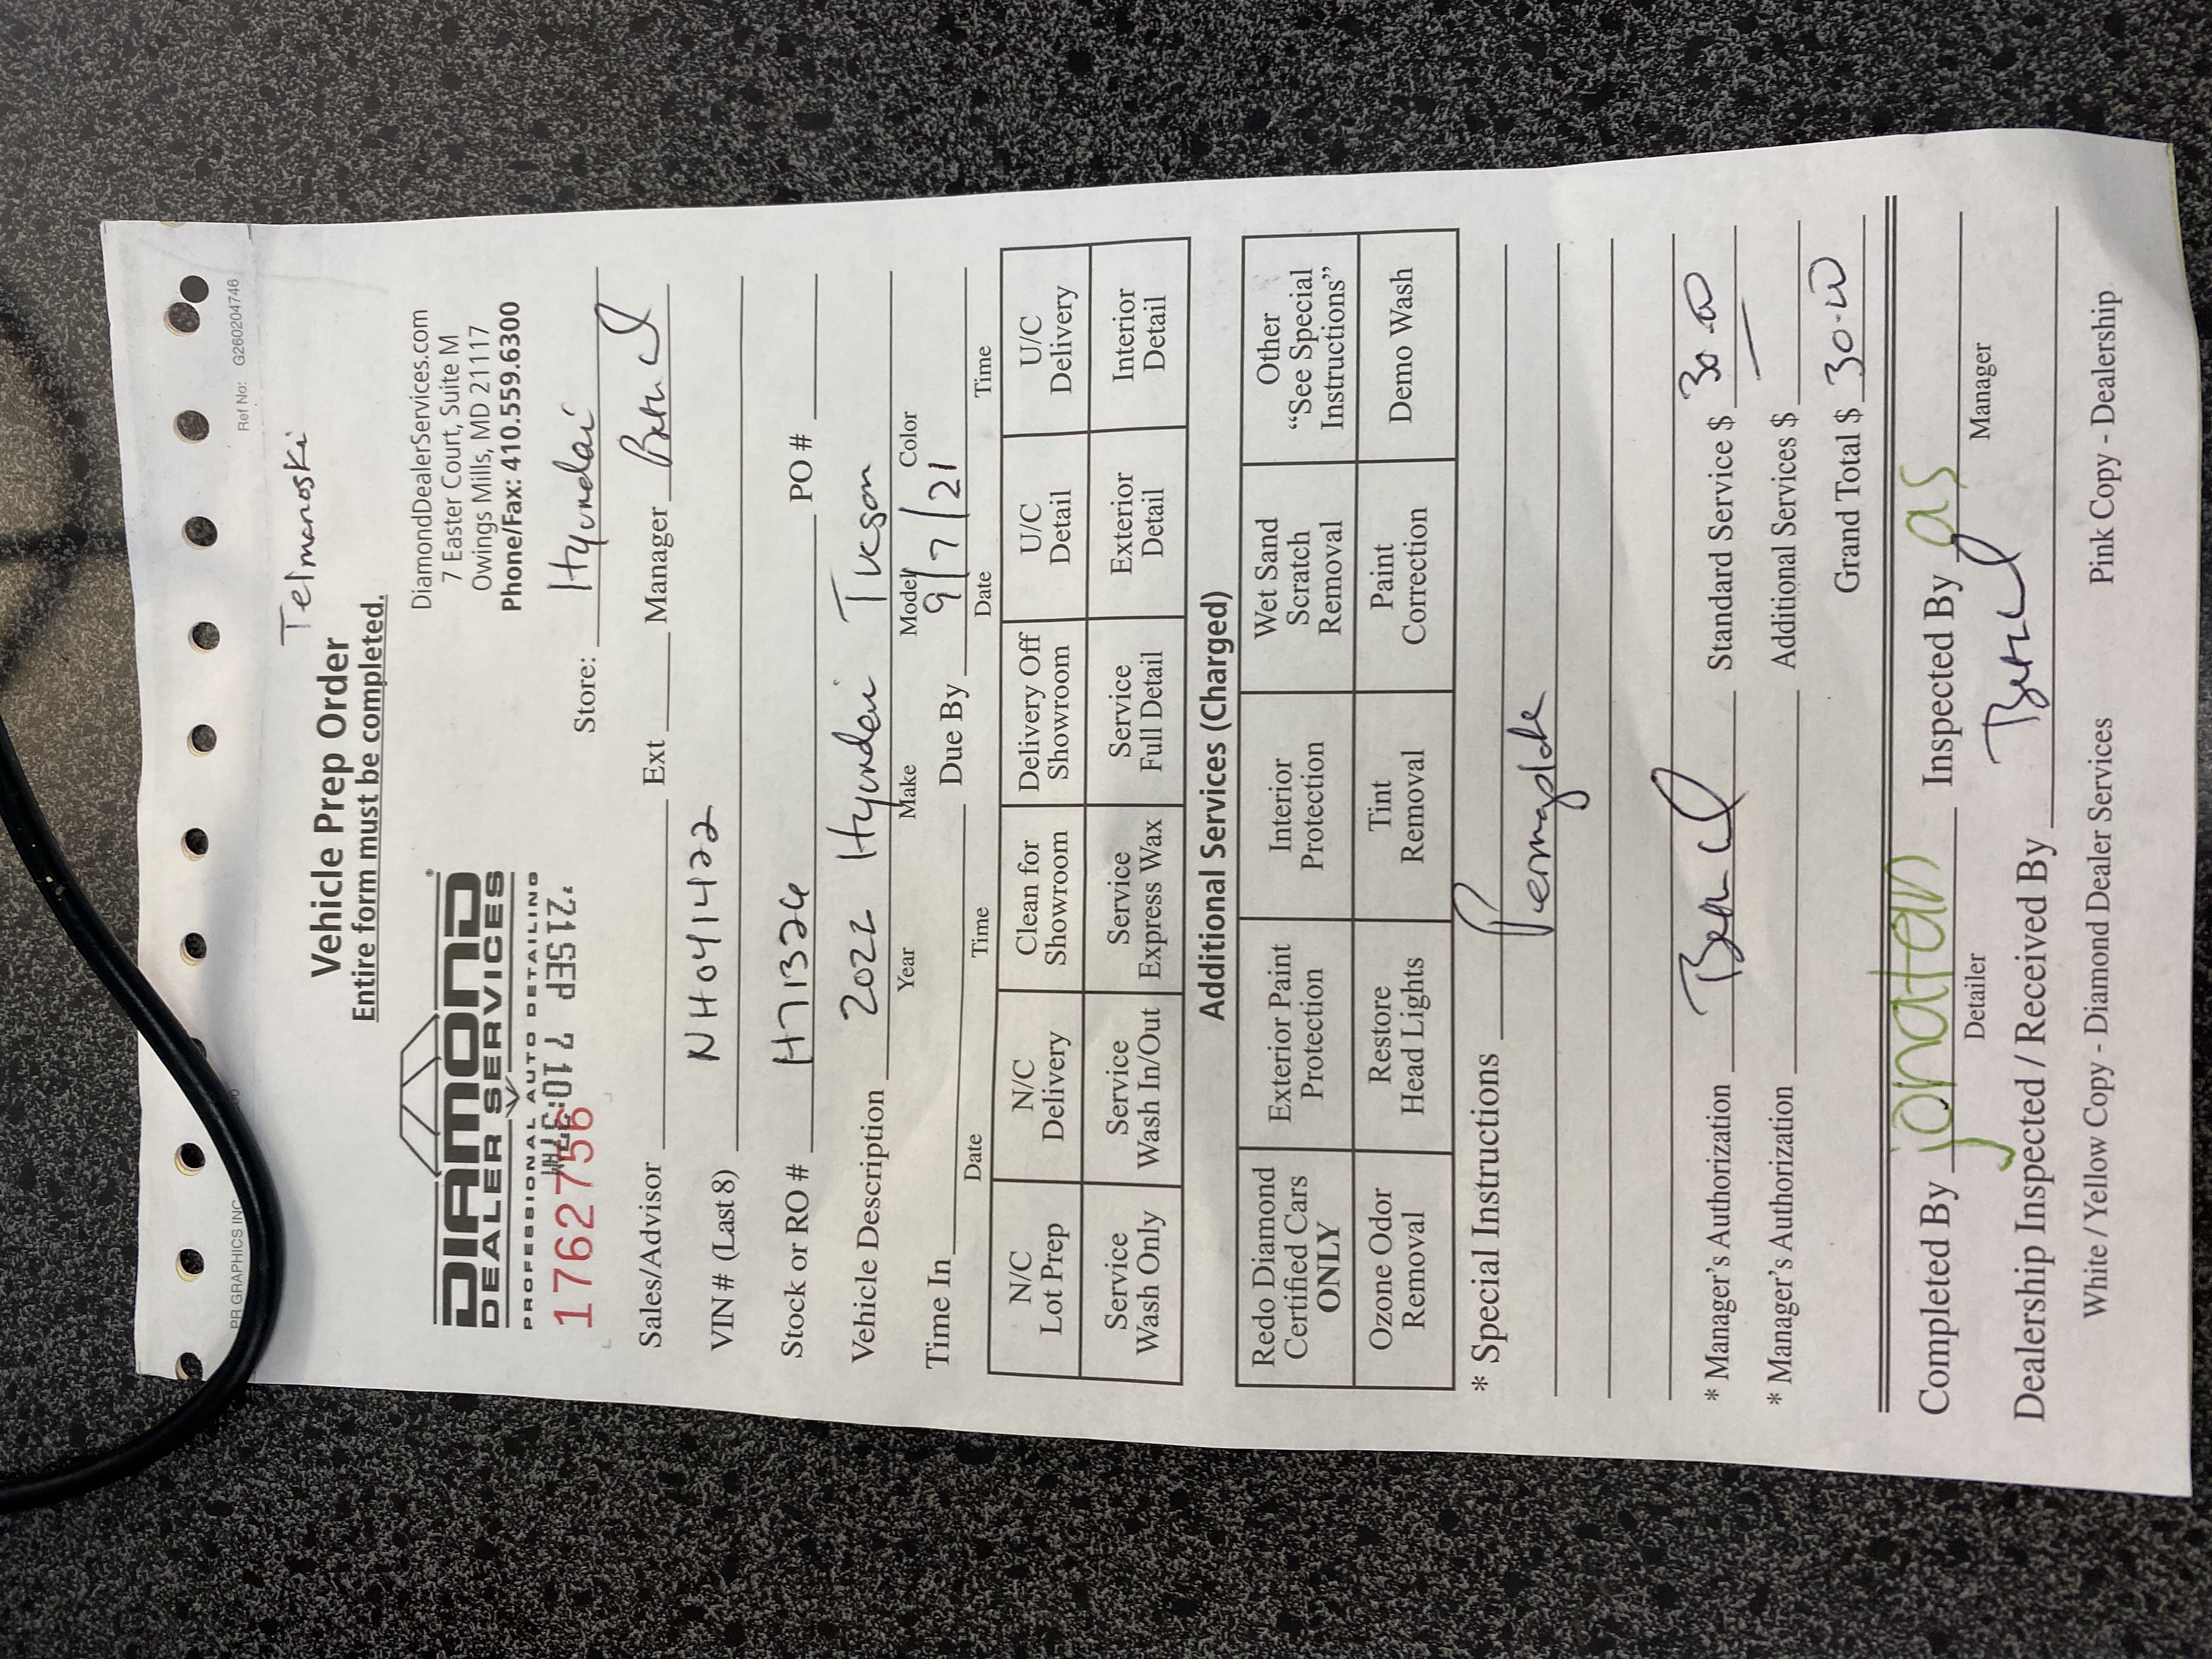 PR GRAPHICS INC
Ref No: G260204746
Telmanoski
Vehicle Prep Order
Entire form must be completed.
DIAMOND
DEALER SERVICES
PROFESSIONAL AUTO DETAILING
DiamondDealerServices.com
7 Easter Court, Suite M
Owings Mills, MD 21117
Phone/Fax: 410.559.6300
'21SEP 7 10:37AM
1762756
Store: Hyundai
Sales/Advisor Ext Manager
VIN # (Last 8) NH041422
Stock or RO # H71324 PO #
Vehicle Description 2022 Hyundai Tucson
Year Make Model Color
Time In Due By 9/7/21
Date Time Date Time
N/C Lot Prep N/C Delivery Clean for Showroom Delivery Off Showroom U/C Detail U/C Delivery
Service Wash Only Service Wash In/Out Service Express Wax Service Full Detail Exterior Detail Interior Detail
Additional Services (Charged)
Redo Diamond Certified Cars ONLY Exterior Paint Protection Interior Protection Wet Sand Scratch Removal Other "See Special Instructions"
Ozone Odor Removal Restore Head Lights Tint Removal Paint Correction Demo Wash
* Special Instructions Permaplate
* Manager's Authorization Standard Service $ 30.00
* Manager's Authorization Additional Services $
Grand Total $ 30.00
Completed By jonatan Inspected By as
Detailer Manager
Dealership Inspected / Received By
White / Yellow Copy - Diamond Dealer Services Pink Copy - Dealership